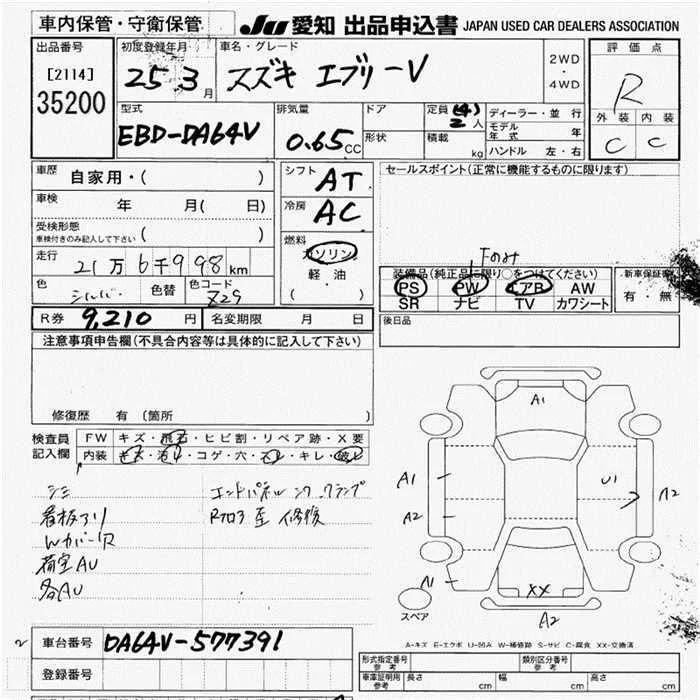 車内保管・守衛保管 JU 愛知 出品申込書 JAPAN USED CAR DEALERS ASSOCIATION
出品番号 初度登録年月 車名・グレード 2WD・4WD 評価点
[2114] 25.3月 スズキ エブリーV R
35200 外装 内装
型式 排気量 ドア 定員 (4) 2人 ディーラー・並行 C C
EBD-DA64V 0.65CC 形状 積載 kg モデル年式 年
ハンドル 左・右
車歴 自家用・( ) シフト AT セールスポイント(正常に機能するものに限ります)
車検 年 月( 日) 冷房 AC
受検形態 ( )
車検付きのみ記入して下さい
燃料 ガソリン
軽油
( )
走行 21万6千998km
Fのみ
装備品(純正品に限り○をつけてください) 新車保証書
色 シルバー 色替 色コード Z29
PS PW エアB AW 有・無
SR ナビ TV カワシート
R券 9,210円 名変期限 月 日 後日品
注意事項申告欄(不具合内容等は具体的に記入して下さい)
修復歴 有(箇所
検査員記入欄 FW キズ・飛石・ヒビ割・リペア跡・X要
内装 キズ・汚れ・コゲ・穴・スレ・キレ・破れ
シミ
看板アリ
Wカバーワレ
荷室AU
各AU
エンドパネル
Rフロア 歪 修複
A1
A1 U1 A2
A2
A1 XX
スペア A2
A-キズ E-エクボ U-凹み W-補修跡 S-サビ C-腐食 XX-交換済
2 車台番号 DA64V-577391
登録番号
形式指定番号 参考 類別区分番号 参考
車庫証明用 参考 長さ cm 幅 cm 高さ cm